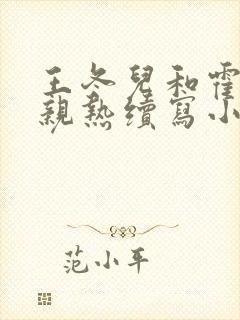 王冬兒和霍
親熱續寫小
范小平